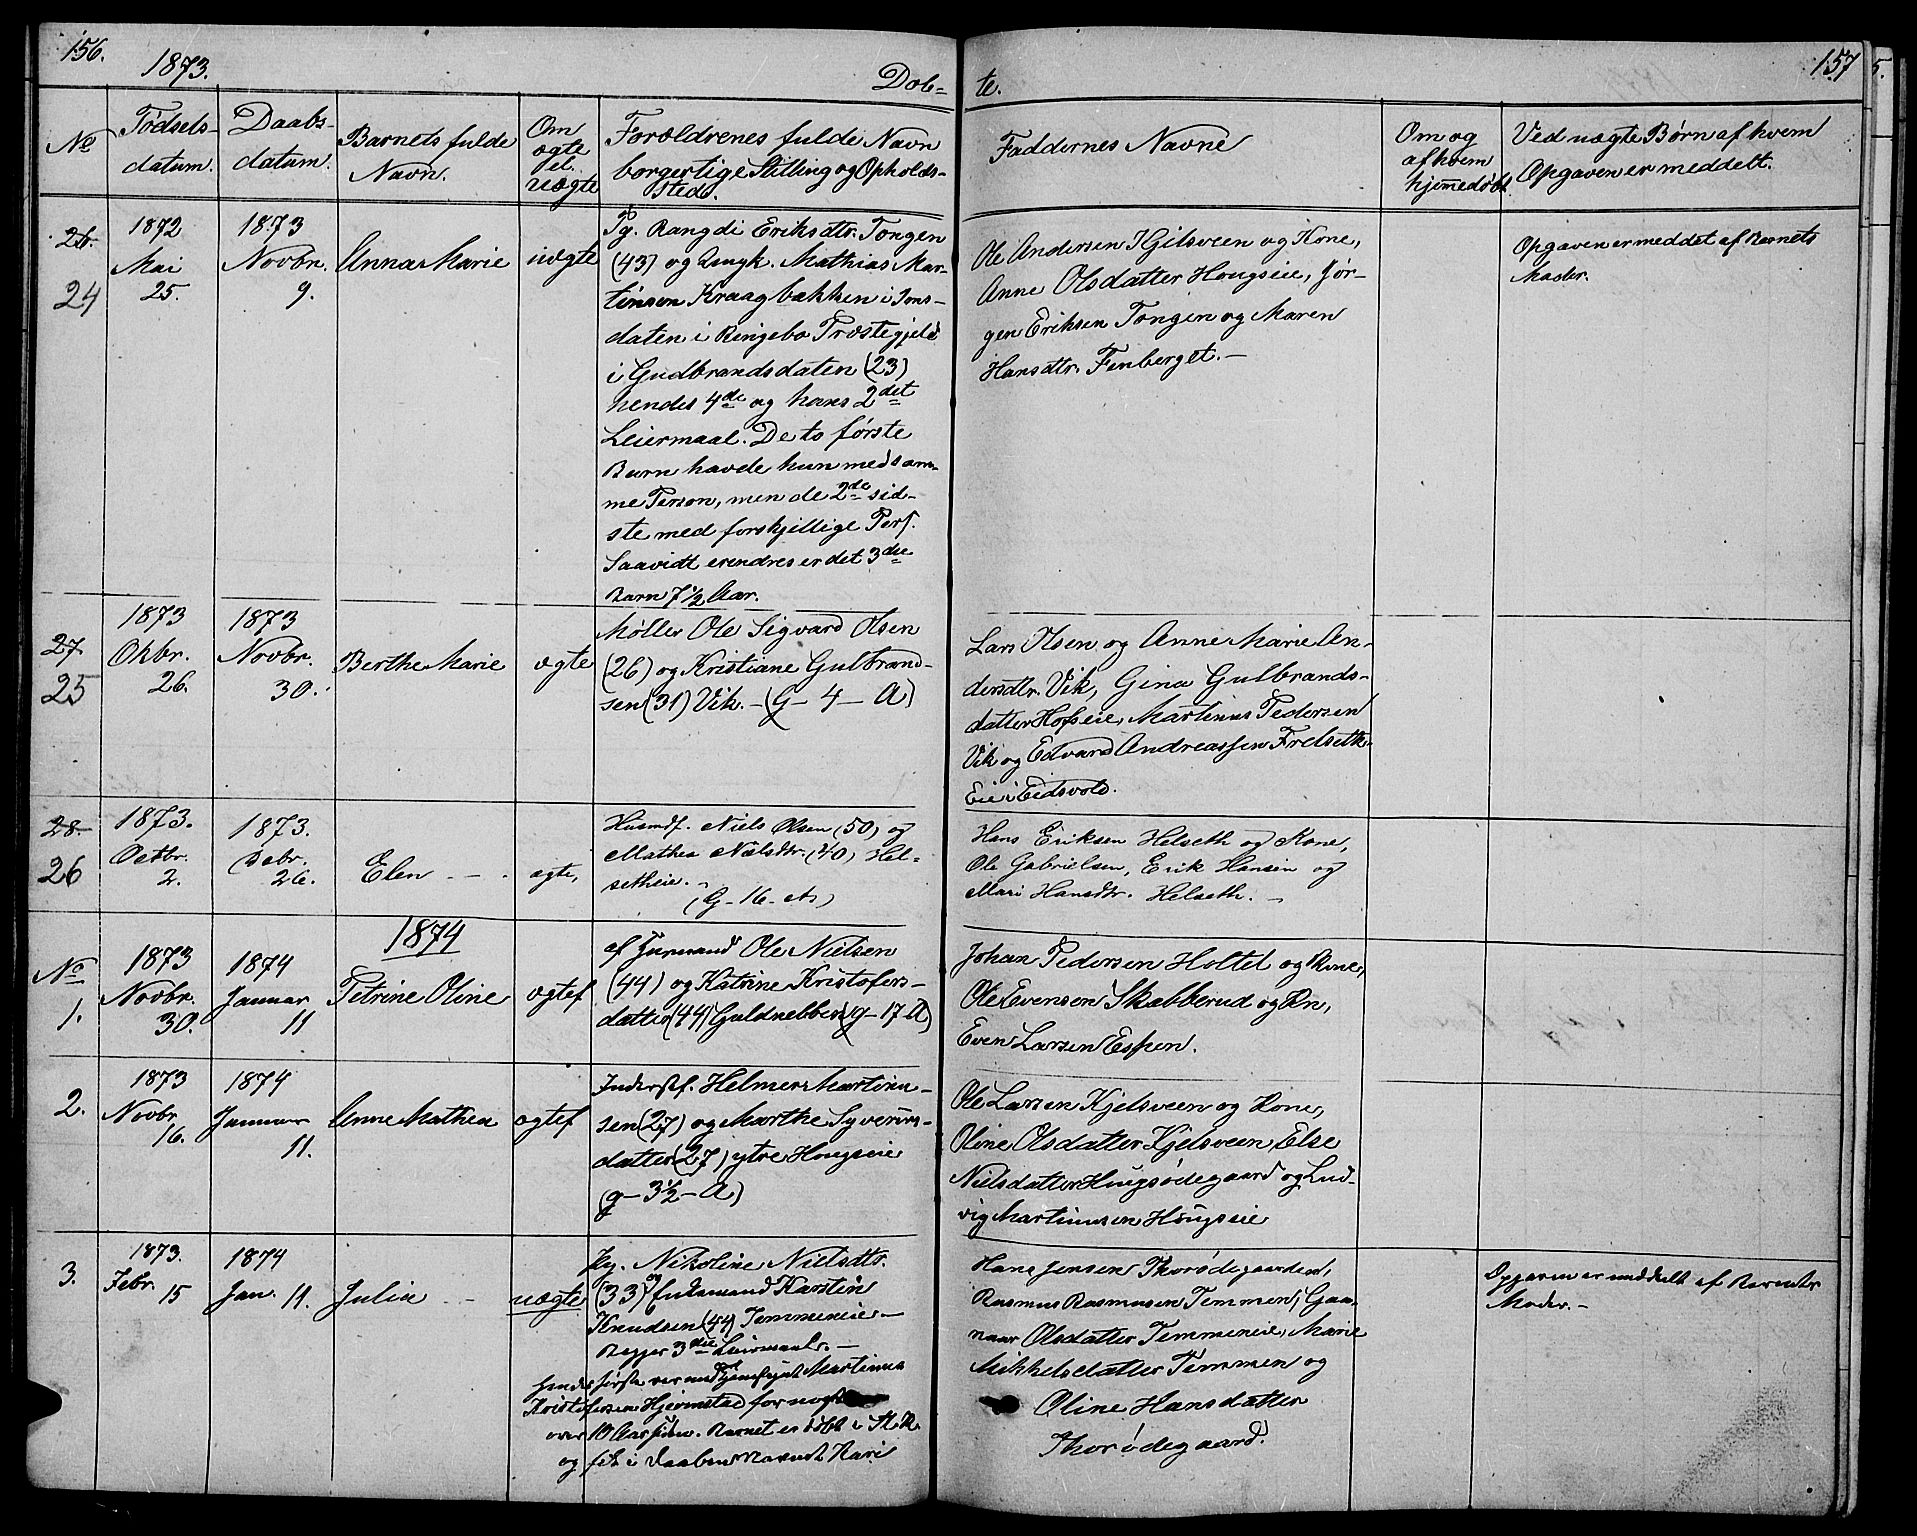 156.
1873.
Døb-
te.
157
5.
No
Fødsels-
datum.
Daabs-
datum.
Barnets fulde
Navn.
Om
ægte
el.
uægte
Forældrenes fulde Navn
borgerlige Stilling og Opholds-
sted.
Faddernes Navne
Om og
af hvem
hjemedøbt
Ved uægte Børn af hvem
Opgaven er meddelt.
26.
24
1872
Mai
25.
1873
Novbr.
9.
Anna Marie
uægte
Pg. Rangdi Eriksdtr. Tongen
(43) og Ungk. Mathias Mar-
tinsen Kraagbækken i
dalen i Ringebo Præstegjeld
i Gudbrandsdalen (23)
hendes 4de og hans 2det
Leiermaal. De to første
Børn havde hun med sam-
me Person, men de 2de sid-
ste med forskjellige Pers.
Saavidt erindres er det 3die
Barn 7 1/2 Aar.
Ole Andersen Kjelsveen og Kone,
Anne Olsdatter Hougseie, Jør-
gen Eriksen Tongen og Maren
Hansdtr. Finberget. —
Opgaven er meddelt af Barnets
Moder.
27
25
1873
Okbr.
26.
1873
Novbr.
30.
Berthe Marie
ægte
Møller Ole Sigvard Olsen
(26) og Kristiane Gulbrand-
sen (31) Vik. - (G - 4 - A)
Lars Olsen og Anne Marie An-
dersdtr. Vik, Gina Gulbrands-
datter Hofseie, Martinus Pedersen
Vik og Edvard Andreassen Frelseth-
Eie i Eidsvold.
28.
26
1873.
Octbr.
2.
1873.
Debr.
26.
Elen - - .
ægte,
Husmdf. Niels Olsen (50) og
Mathea Nielsdtr. (40) Hel-
setheie. -
(G - 16 - A)
Hans Eriksen Helseth og Kone,
Ole Gabrielsen, Erik Hansen og
Mari Hansdtr. Helseth. -
1874
No
1.
1873
Novbr.
30.
1874
Januar
11
Petrine Oline
ægtef
af Husmand Ole Nielsen
(44) og Katrine Kristofers-
datter (44) Guldnebben (g - 17 - A)
Johan Pedersen Holtet og Kone,
Ole Evensen Skabberud og Kn,
Even Larsen Espen.
2.
1873
Novbr
16.
1874
Januar
11.
Anne Mathea
ægtef
Inderstf. Helmer Martinu-
sen (27) og Marthe Syveruns-
datter (27) ytre Hougseie
(g - 3 1/2 - A)
Ole Larsen Kjelsveen og Kone,
Oline Olsdatter Kjelsveen, Else
Nielsdatter Hougsødegaard og Lud-
vig Martinusen Hougseie
3.
1873.
Febr.
15
1874
Jan. 11.
Julia - -
uægte
Pg. Nikoline Nielsdtr.
(33) og Enkemand Karstin
Knudsen (44) Temmeneie -
Begges 3die Leiermaal. -
Hendes første var med Martinus
Kristofersen Hjermstad for noget
over 10 Aar siden. Barnet er født i
og fik i Daaben Navnet Kari
Hans Jensen Thorødegaarden,
Rasmus Rasmusen Temmen, Gaa-
naar Olsdatter Temmeneie, Marie
Mikkelsdatter Temmen og
Oline Hansdatter
Thorødegaard.
Opgaven er meddelt af Barnets
Moder. -